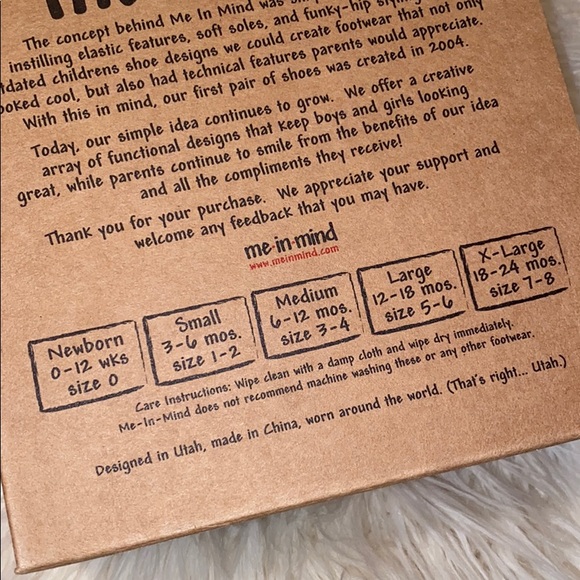 The concept behind Me In Mind was
instilling elastic features, soft soles, and funky-hip
childrens shoe designs we could create footwear that not only
cool, but also had technical features parents would appreciate.
With this in mind, our first pair of shoes was created in 2004.
Today, our simple idea continues to grow. We offer a creative
array of functional designs that keep boys and girls looking
great, while parents continue to smile from the benefits of our idea
and all the compliments they receive!
Thank you for your purchase. We appreciate your support and
welcome any feedback that you may have.
me·in·mind
www.meinmind.com
Newborn
0-12 wks
size 0
Small
3-6 mos.
size 1-2
Medium
6-12 mos.
size 3-4
Large
12-18 mos.
size 5-6
X-Large
18-24 mos.
size 7-8
Care Instructions: Wipe clean with a damp cloth and wipe dry immediately.
Me-In-Mind does not recommend machine washing these or any other footwear.
Designed in Utah, made in China, worn around the world. (That's right... Utah.)